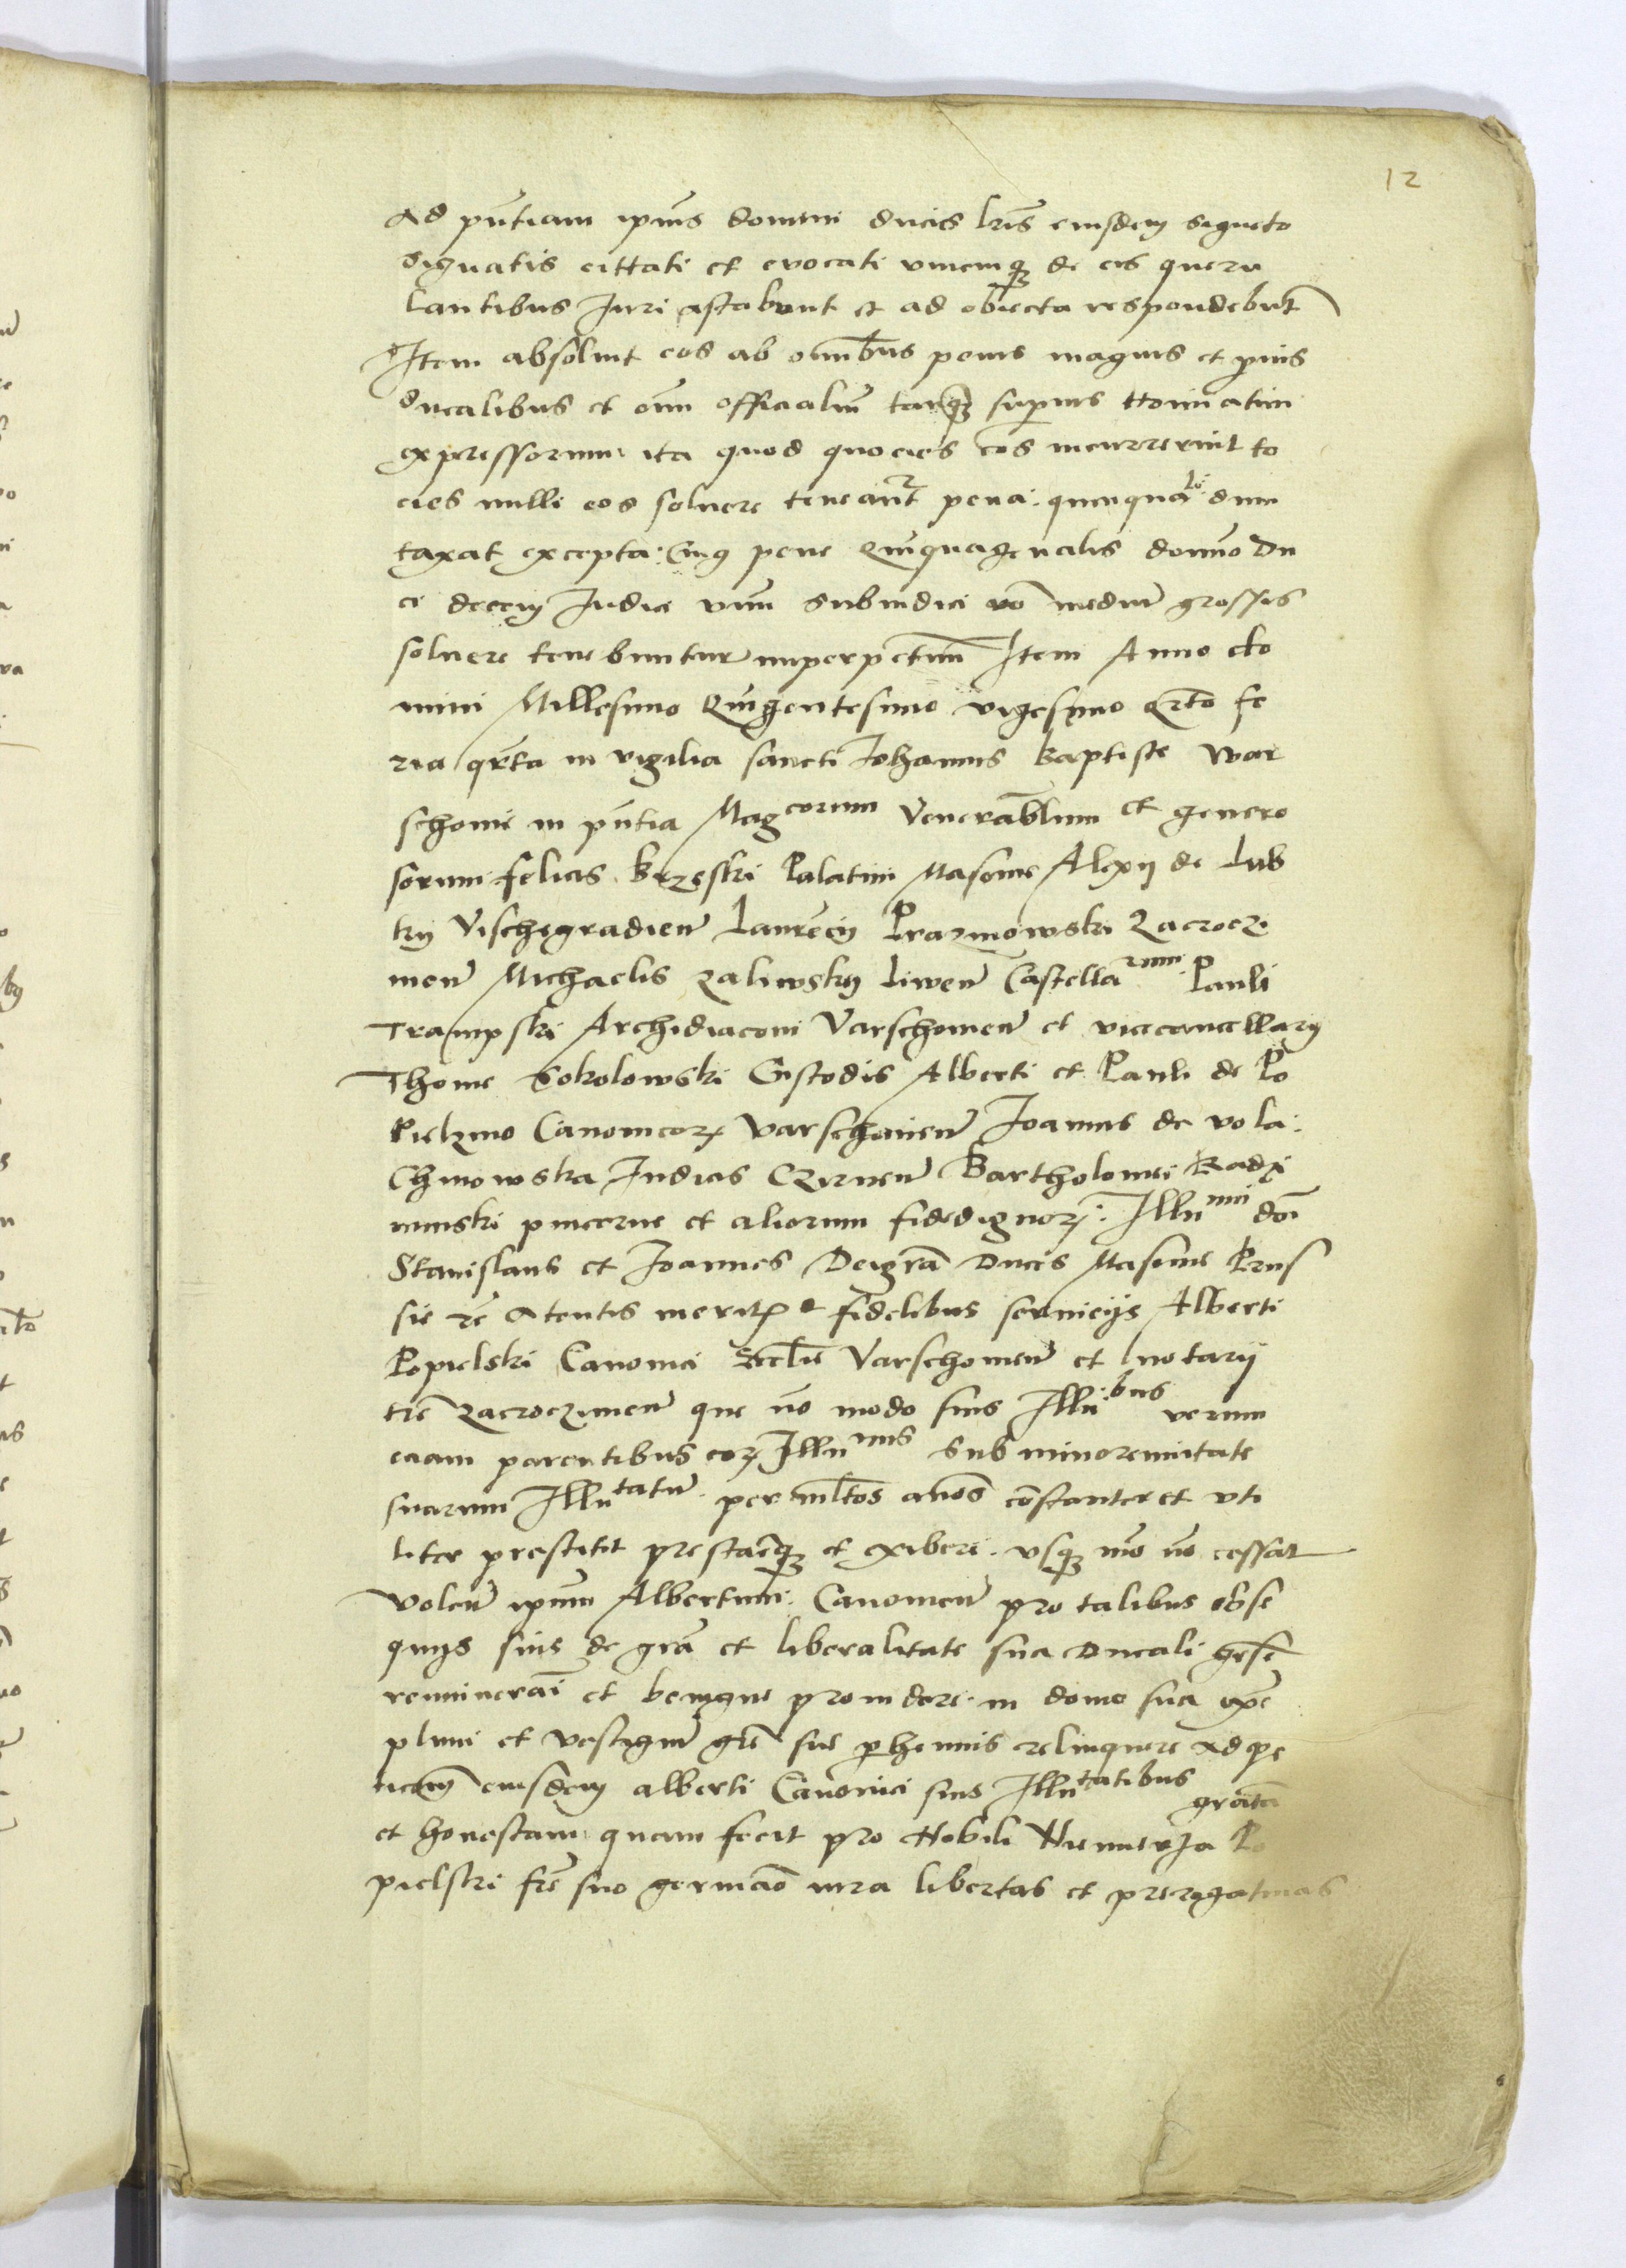 12
Ad pñtiam ipius domini ducis lris eiusdem signeto
signatis cittati et evocati vnicuiq3 de eis queru
lantibus Juri astabunt et ad obiecta respondebūt
Item absoluit eos ab omībus penis magnis et pruis
ducalibus et oīm officialiū tanq3 superius nominatim
expressorum ita quod quocies eos incurrerint to
cies nulli eos soluere teneantr pena quinquali dum
taxat excepta Cuius pene Quinquagenalis domino Du
ci decem Judici vnū subiudici vo mediū grossos
soluere tenebuntur imperpetuū Item Anno do
mini Millesimo Quingentesimo vigesimo qrto fe
ria qrta in vigilia sancti Johannis Baptiste War
schouie in pñtia Magcorum Venerabilium et genero
sorum felicis Brzeski Palatini Masouie Alexij de Lub
kij Vischegradien Laurēcij Prazmowski Zacroczi
men Michaelis Zaliwskij Liwen Castellarum Pauli
Trampski Archidiaconi Varschouien et vicecancellarij
Thome Sokolowski Custodis Alberti et Pauli de Po
pielzino Canonicor Varschouien Joannis de vola
Chinowska Judicis Czirnen Bartholomei Radzi
minski pincerne et aliorum fidedignor Illumi doī
Stanislaus et Joannes Dei grā Ducis Masouie Prus
sie re Atentis meritis fidelibus seruicijs Alberti
Popielski Canonici Ecclie Varschouien et notarij
tre Zacrocimen que nō modo suis Illubus verum
eciam parentibus eor Illumis sub minorennitate
suarum Illutatū per multos annos constanter et vti
liter prestitit prestareq3 et exiberi vsq3 mō nō cessat
Volen ipsum Albertum Canonicū pro talibus obse
quijs suis de grā et liberalitate sua Ducali
reminerari et benigne prouidere in domo sua
et vestigiū sue perhennis relinquere Ad pe
ticōem eiusdem alberti Canonici suis Illutatibus gratā
et honestam quam fecit pro Nobili Po
pielski fre suo germano iura libertates et prerogatiuas